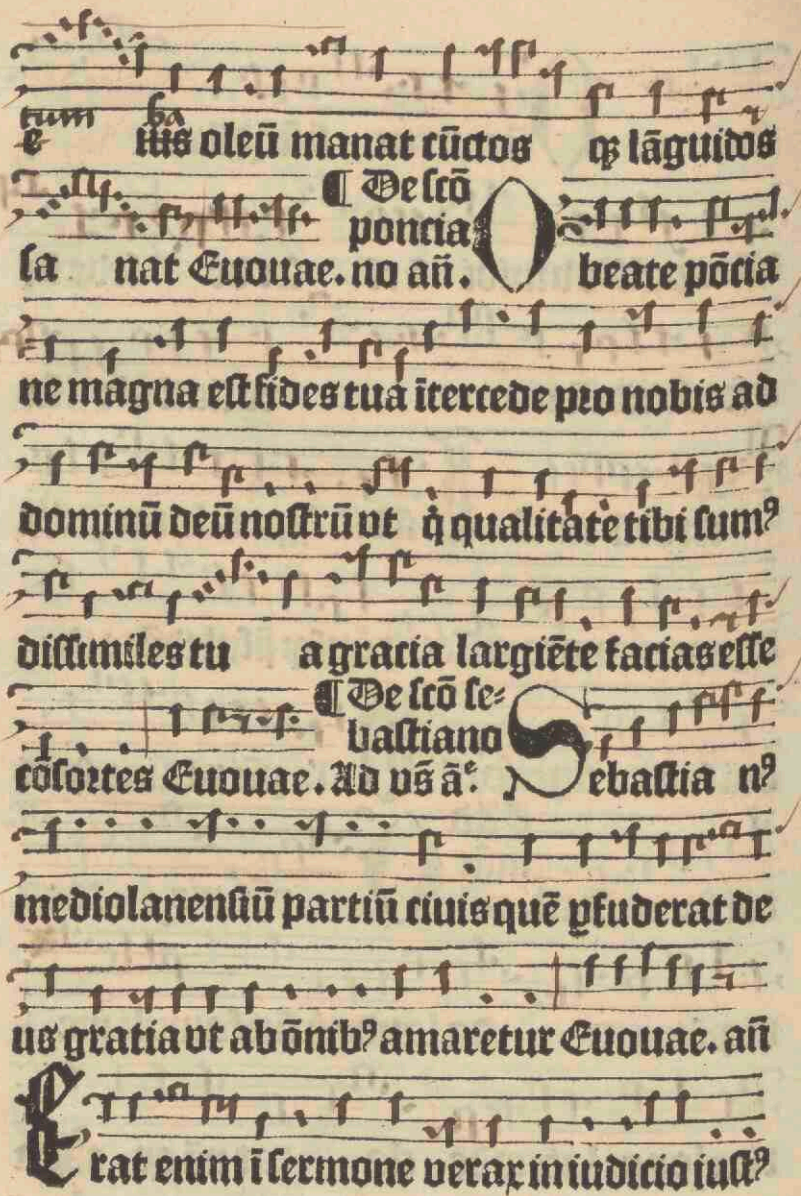 tum ba
e iiis oleū manat cūctos qꝫ lāguidos
¶ De scō
poncia
sa nat Euouae. no añ. O beate pōcia
ne magna est fides tua ītercede pro nobis ad
dominū deū nostrū vt q̇ qualitate tibi sumꝰ
dissimiles tu a gracia largiēte facias esse
¶ De scō se⸗
bastiano
cōsortes Euouae. Ad vs̄ āͤ. Sebastia nꝰ
mediolanensiū partiū ciuis quē ꝑfuderat de
us gratia vt ab ōnibꝰ amaretur Euouae. añ
Erat enim ī sermone verax in iudicio iustꝰ